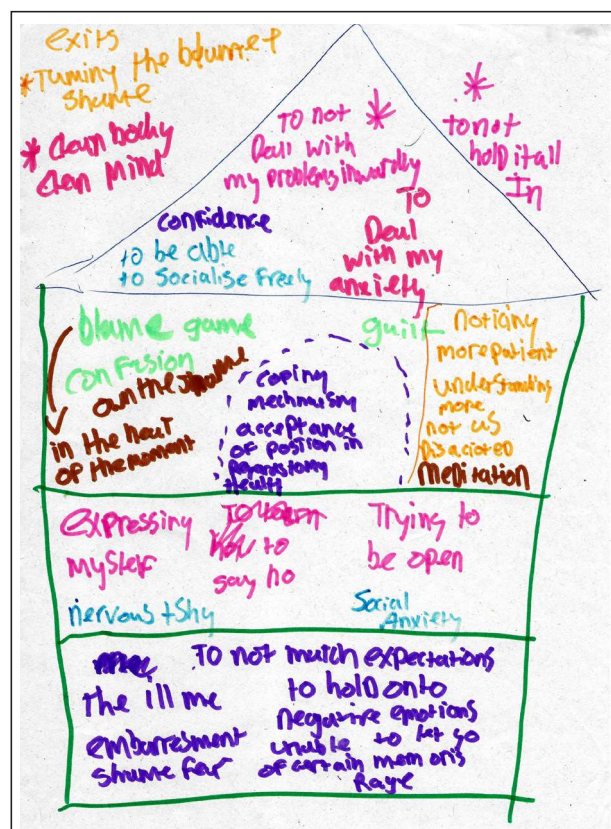 exits
*Turning the blame +
shame
* clean body
clean mind
*
TO not
Deal with
my problems inwardly
*
to not
hold it all
In
confidence
to be able
to Socialise Freely
TO
Deal
with my
anxiety
blame game
confusion
own the
in the heat
of the moment
guilt
coping
mechnaism
acceptance
of position in
health
noticing
more patient
understanding
more
not as
Disaciated
meditation
expressing
myself
how to
say no
Trying to
be open
nervous + shy
Social
Anxiety
the ill me
embarresment
shame fear
TO not match expectations
to hold onto
negative emotions
unable to let go
of certain memoris
Rage